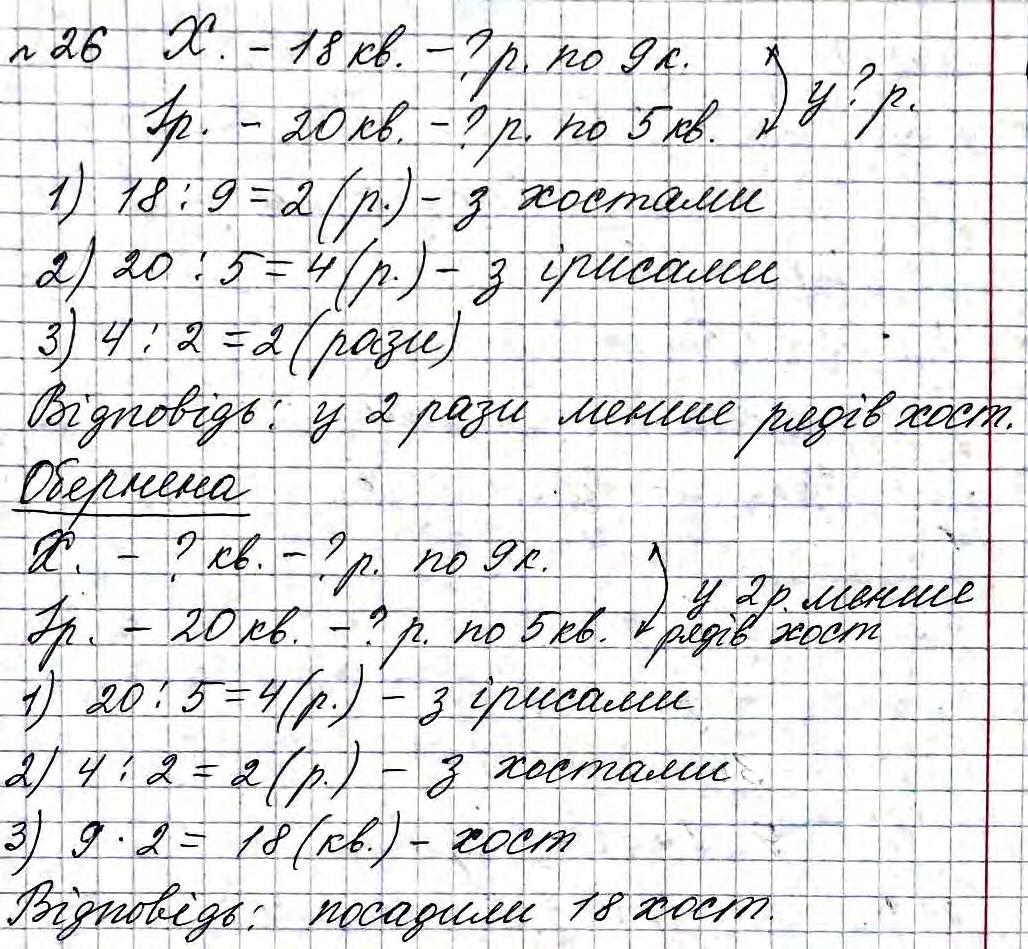 №26 Х. – 18 кв. – ? р. по 9 к.
Ір. – 20 кв. – ? р. по 5 кв.
у ? р.
1) 18 : 9 = 2 (р.) – з хостами
2) 20 : 5 = 4 (р.) – з ірисами
3) 4 : 2 = 2 (рази)
Відповідь: у 2 рази менше рядів хост.
Обернена
Х. – ? кв. – ? р. по 9 к.
Ір. – 20 кв. – ? р. по 5 кв.
у 2 р. менше
рядів хост
1) 20 : 5 = 4 (р.) – з ірисами
2) 4 : 2 = 2 (р.) – з хостами
3) 9 · 2 = 18 (кв.) – хост
Відповідь: посадили 18 хост.